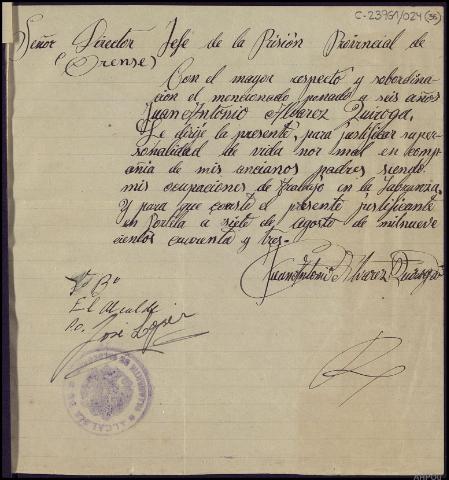 C-23761/024 (36)
Señor Director Jefe de la Prisión Provincial de
(Orense)
Con el mayor respecto y subordina-
ción el mencionado penado a seis años
Juan Antonio Alvarez Quiroga.
Le dirije la presente, para justificar su per-
sonalidad de vida nor mal en comp-
añia de mis ancianos padres siendo
mis ocupaciones de trabajo en la labranza.
Y para que conste el presente justificante
en Portela a siete de Agosto de mil nueve
cientos cuarenta y tres.
Juan Antonio Alvarez Quiroga
Vº Bº
El Alcalde
Po. José López
ALCALDIA DE
AHPOU